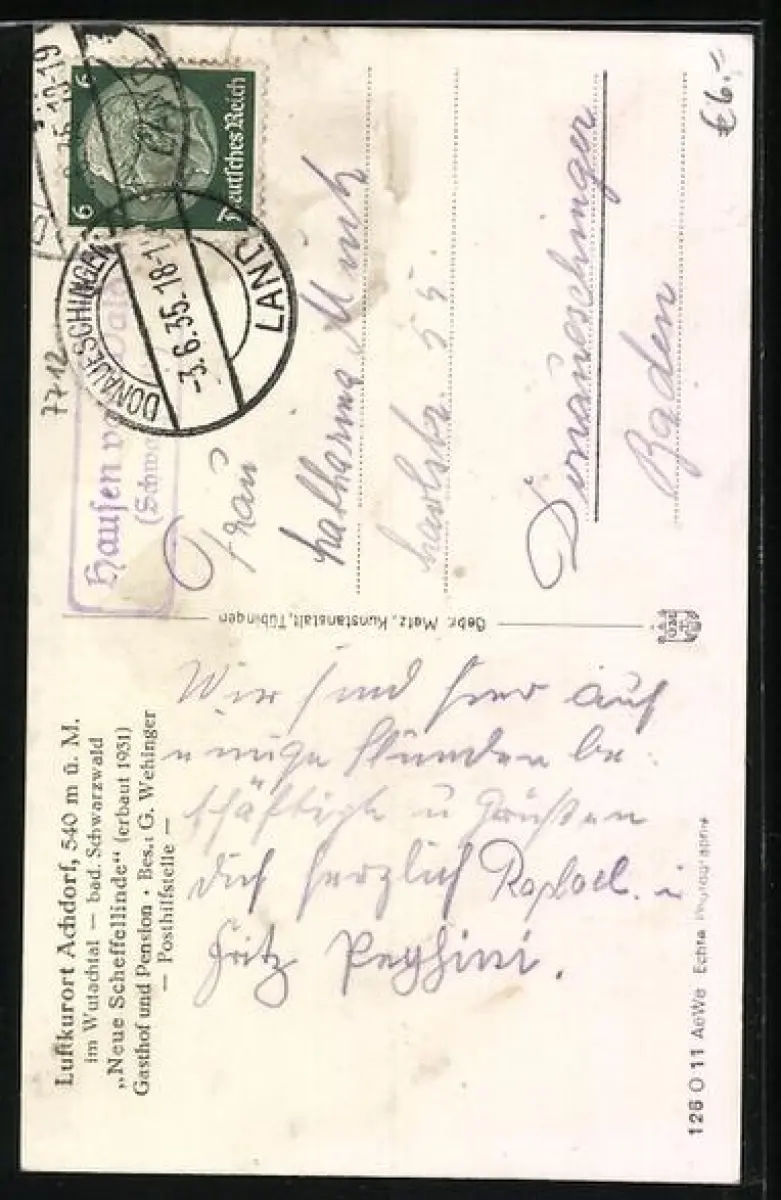 Luftkurort Achdorf, 540 m ü. M.
im Wutachtal — bad. Schwarzwald
„Neue Scheffellinde“ (erbaut 1931)
Gasthof und Pension • Bes.: G. Wehinger
— Posthilfstelle —
Wir sind hier auf
einige Stunden be-
schäftigt u Grüßen
dich herzlich Raphael. u
Fritz
126 O 11 AeWe Echte Photographie
Gebr. Metz, Kunstanstalt, Tübingen
Deutsches Reich
6 6
DONAUESCHINGEN
-3.6.35.18-1
LAND
Hausen vor
(Schwa
7712
Frau
Katharina Münch
55.
Donaueschingen
Baden
€ 6.-